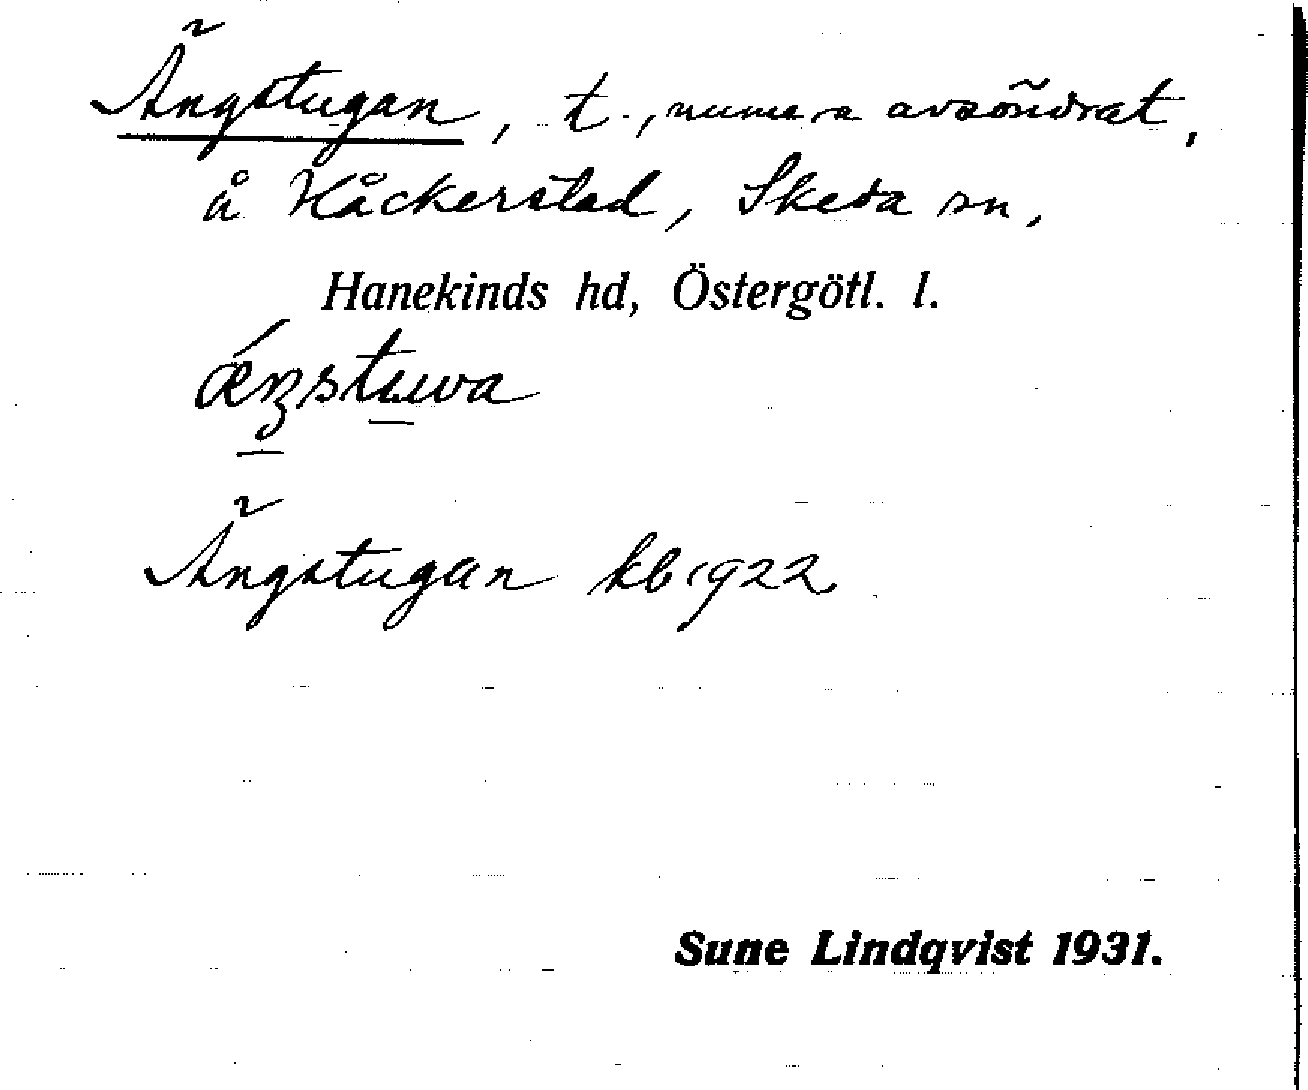 Ängstugan, t., numera avsöndrat,
å Håckerstad, Skeda sn,
Hanekinds hd, Östergötl. l.
ǽŋstuwa
Ängstugan kb 1922
Sune Lindqvist 1931.